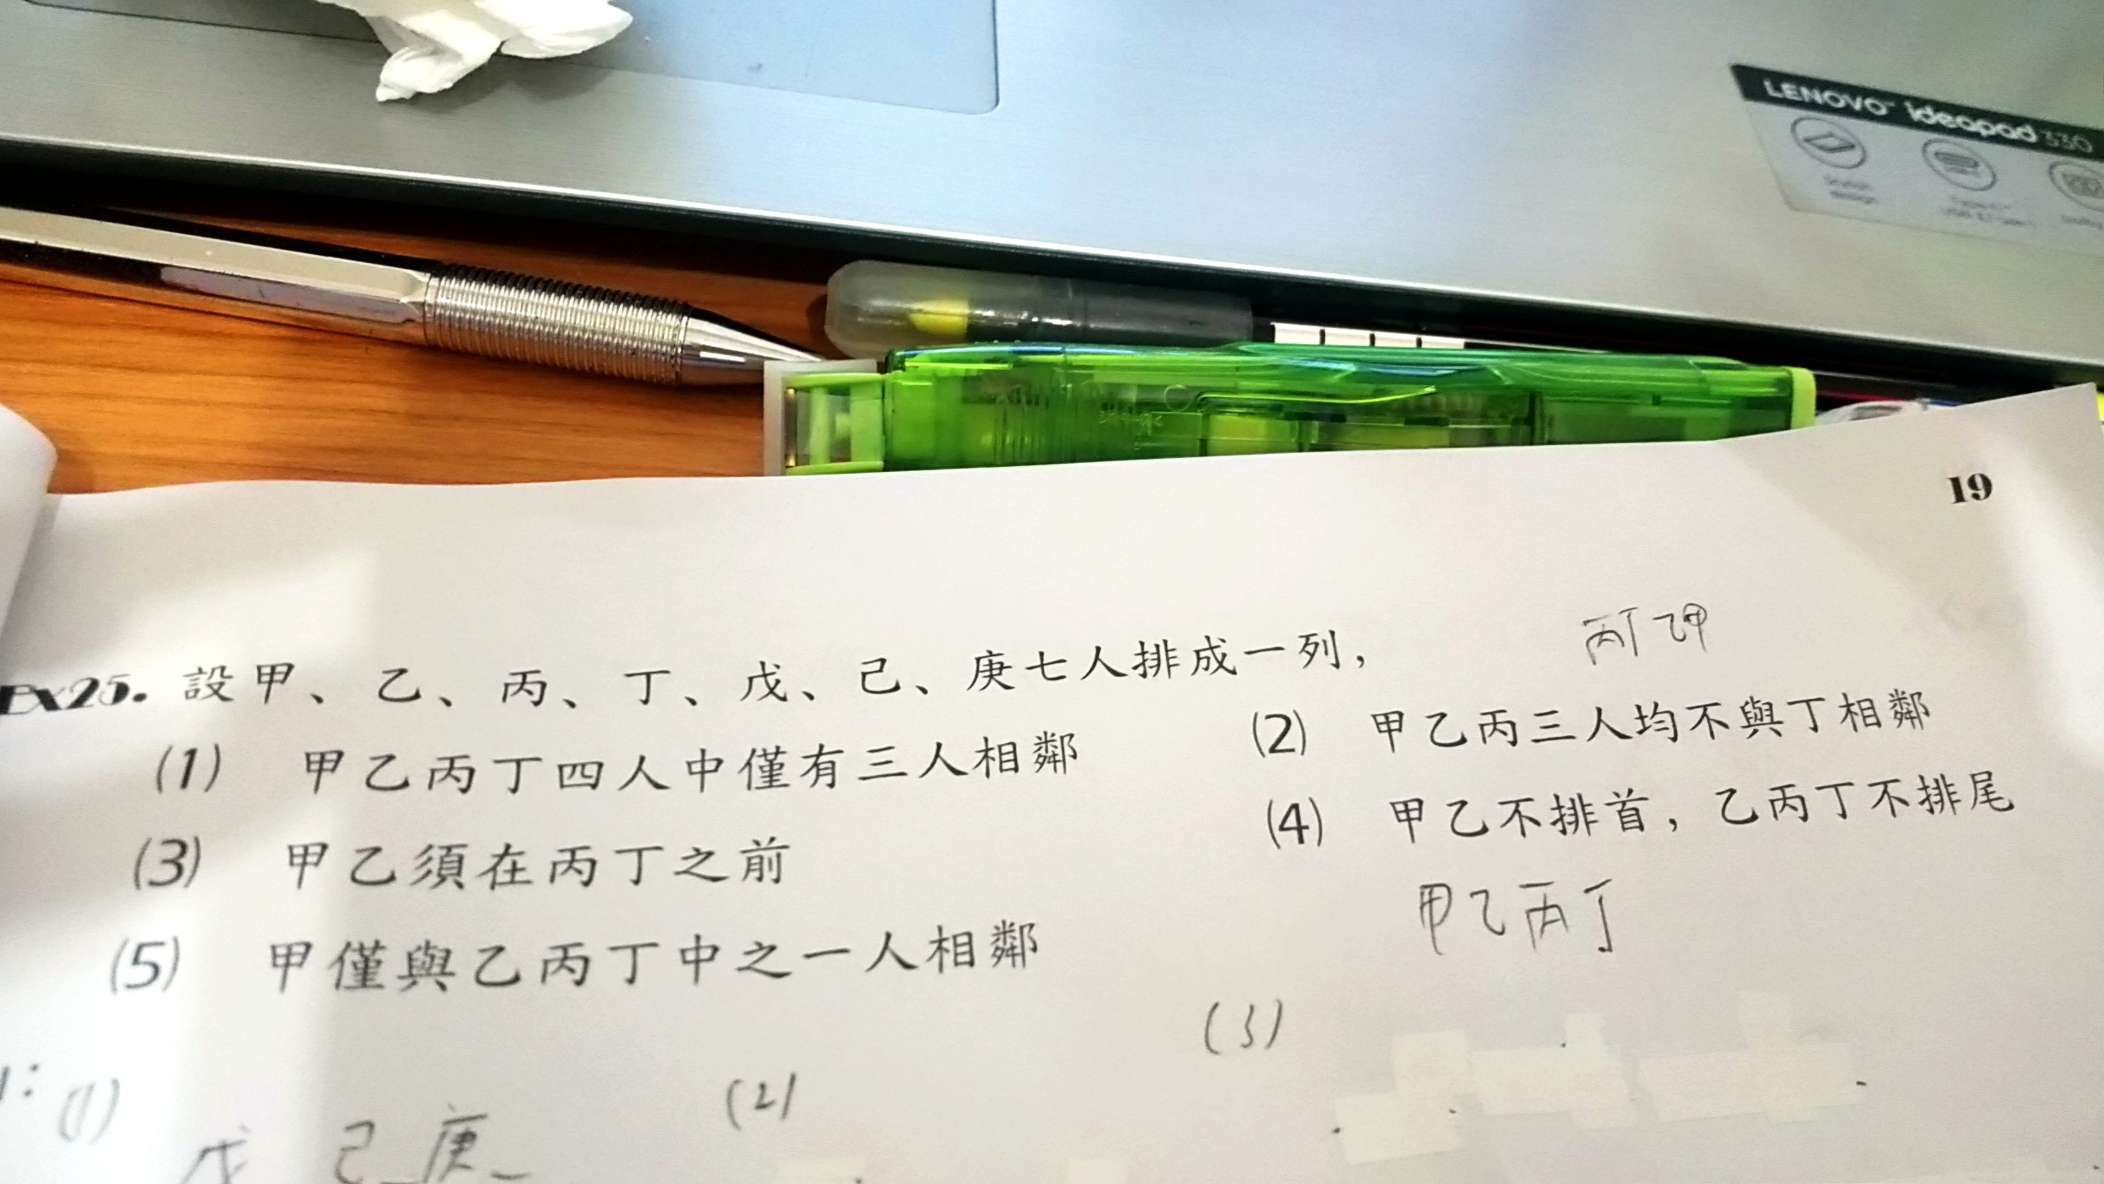 LENOVO ideapad 330
19
丙丁乙甲
Ex25. 設甲、乙、丙、丁、戊、己、庚七人排成一列,
(1) 甲乙丙丁四人中僅有三人相鄰
(2) 甲乙丙三人均不與丁相鄰
(3) 甲乙須在丙丁之前
(4) 甲乙不排首,乙丙丁不排尾
(5) 甲僅與乙丙丁中之一人相鄰
甲乙丙丁
(3)
(1)
(2)
戊 己 庚